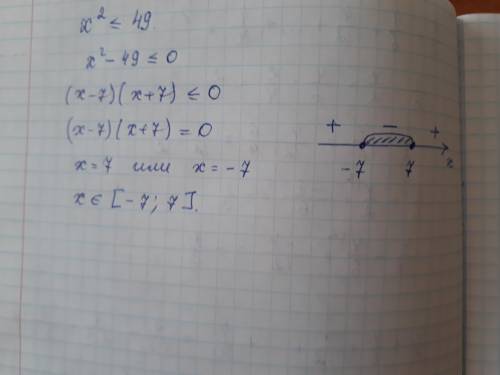 x² ≤ 49.
x² - 49 ≤ 0
(x-7)(x+7) ≤ 0
(x-7)(x+7) = 0
x = 7 или x = -7
x ∈ [-7; 7].
+ - +
-7 7 x